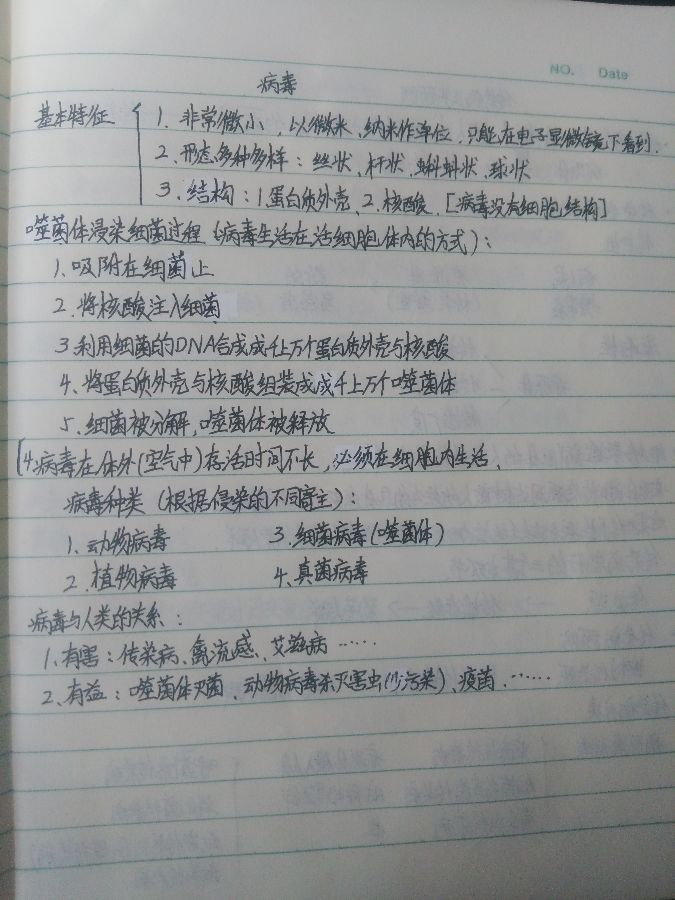 NO. Date
病毒
基本特征
1. 非常微小，以微米、纳米作单位，只能在电子显微镜下看到.
2. 形态多种多样：丝状、杆状、蝌蚪状、球状
3. 结构：1 蛋白质外壳、2. 核酸. [病毒没有细胞结构]
噬菌体浸染细菌过程（病毒生活在活细胞体内的方式）：
1. 吸附在细菌上
2. 将核酸注入细菌
3 利用细菌的DNA合成成千上万个蛋白质外壳与核酸
4. 将蛋白质外壳与核酸组装成成千上万个噬菌体
5. 细菌被分解，噬菌体被释放
[4. 病毒在体外（空气中）存活时间不长，必须在细胞内生活.
病毒种类（根据侵染的不同寄主）：
1. 动物病毒 3. 细菌病毒（噬菌体）
2. 植物病毒 4. 真菌病毒
病毒与人类的关系：
1. 有害：传染病、禽流感、艾兹病……
2. 有益：噬菌体灭菌、动物病毒杀灭害虫（少污染）、疫苗……